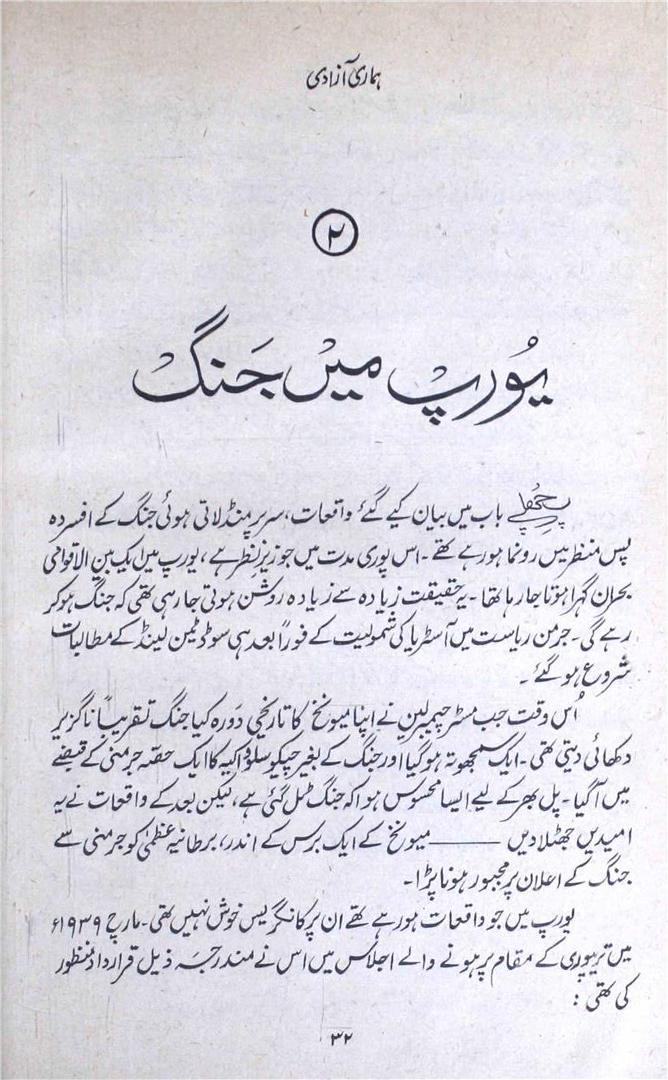 ہماری آزادی
۲
یُورپ میں جَنگ
پچھلے باب میں بیان کیے گئے واقعات، سر پر منڈلاتی ہوئی جنگ کے افسردہ
پس منظر میں رونما ہو رہے تھے۔ اس پوری مدت میں جو زیرِ نظر ہے، یورپ میں ایک بین الاقوامی
بحران گہرا ہوتا جا رہا تھا۔ یہ حقیقت زیادہ سے زیادہ روشن ہوتی جا رہی تھی کہ جنگ ہو کر
رہے گی۔ جرمن ریاست میں آسٹریا کی شمولیت کے فوراً بعد ہی سوڈیٹن لینڈ کے مطالبات
شروع ہو گئے۔
اُس وقت جب مسٹر چیمبرلین نے اپنا میونخ کا تاریخی دَورہ کیا جنگ تقریباً ناگزیر
دکھائی دیتی تھی۔ ایک سمجھوتہ ہو گیا اور جنگ کے بغیر چیکوسلوواکیہ کا ایک حصّہ جرمنی کے قبضے
میں آگیا۔ پل بھر کے لیے ایسا محسوس ہوا کہ جنگ ٹل گئی ہے، لیکن بعد کے واقعات نے یہ
امیدیں جھٹلا دیں ——— میونخ کے ایک برس کے اندر، برطانیہ عظمیٰ کو جرمنی سے
جنگ کے اعلان پر مجبور ہونا پڑا۔
یورپ میں جو واقعات ہو رہے تھے ان پر کانگریس خوش نہیں تھی۔ مارچ ۱۹۳۹ء
میں تریپوری کے مقام پر ہونے والے اجلاس میں اس نے مندرجہ ذیل قرارداد منظور
کی تھی :
۳۲